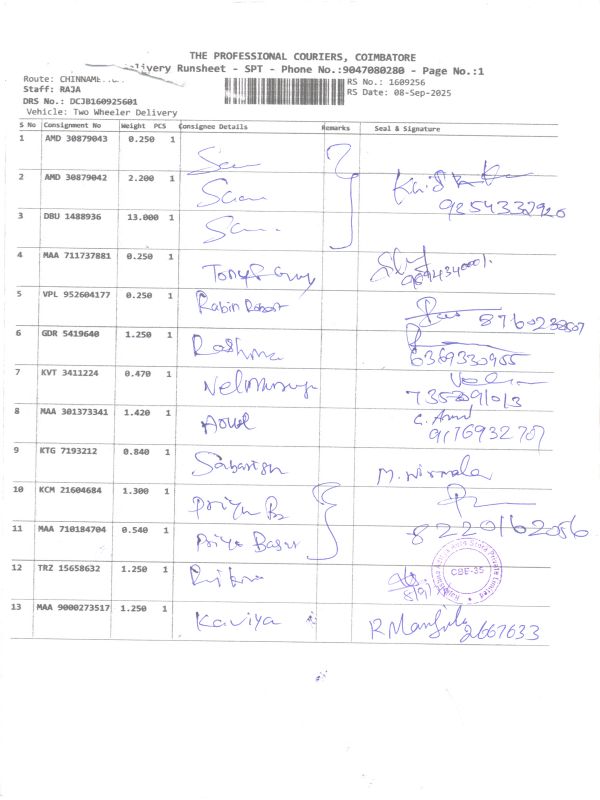 THE PROFESSIONAL COURIERS, COIMBATORE
Delivery Runsheet - SPT - Phone No.:9047080280 - Page No.:1
Route: CHINNAME
RS No.: 1609256
Staff: RAJA
RS Date: 08-Sep-2025
DRS No.: DCJB160925601
Vehicle: Two Wheeler Delivery
S No Consignment No Weight PCS Consignee Details Remarks Seal & Signature
1 AMD 30879043 0.250 1
2 AMD 30879042 2.200 1
9854332920
3 DBU 1488936 13.000 1
4 MAA 711737881 0.250 1
5 VPL 952604177 0.250 1 Rabin Robert
6 GDR 5419640 1.250 1 Rashma 6369330955
7 KVT 3411224 0.470 1
7352091013
8 MAA 301373341 1.420 1
9176932707
9 KTG 7193212 0.840 1 Sabarish M. Nirmala
10 KCM 21604684 1.300 1 Priya
11 MAA 710184704 0.540 1 Priya 8220162056
12 TRZ 15658632 1.250 1
CBE-35
Private Limited
13 MAA 9000273517 1.250 1 Kaviya R Manjula 2667633